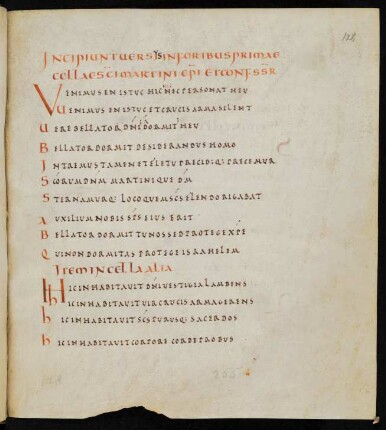 128
INCIPIUNT UERSUS IN FORIBUS PRIMAE
CELLAE SCI MARTINI EPI ET CONF SSR
VENIMUS EN ISTUC HIC NEC PERSONAT HEU
UENIMUS EN ISTUC ET CRUCIS ARMA SILENT
UERE BELLATOR DNI DORMIT HEU
BELLATOR DORMIT DESIDERANDUS HOMO
INTREMUS TAMEN ET FLETU PRECIBUSQ: PRECEMUR
SCORUM DNM MARTINI QUE DM
STERNAMUR Q: LOCO QUEM SCS FLENDO RIGABAT
AUXILIUM NOBIS SCS EIUS ERIT
BELLATOR DORMIT TU NOS SED PROTEGE XPE
QUI NON DORMITAS PROTEGE ISRAHELEM
ITEM IN CELLA ALIA
HIC INHABITAUIT DNI UESTIGIA LAMBENS
HIC INHABITAUIT UIR CRUCIS ARMA GERENS
HIC INHABITAUIT SCS TURUSQ: SACERDOS
HIC INHABITAUIT CORPORE CORDE PROBUS